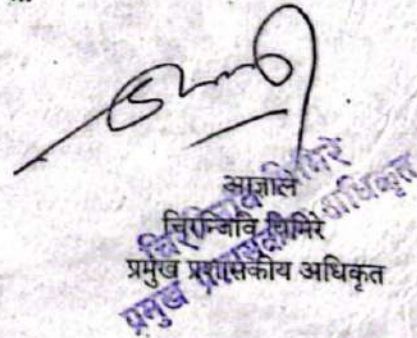 आज्ञाले
चिरन्जिवि घिमिरे
प्रमुख प्रशासकीय अधिकृत
चिरन्जिवि घिमिरे
प्रमुख प्रशासकीय अधिकृत